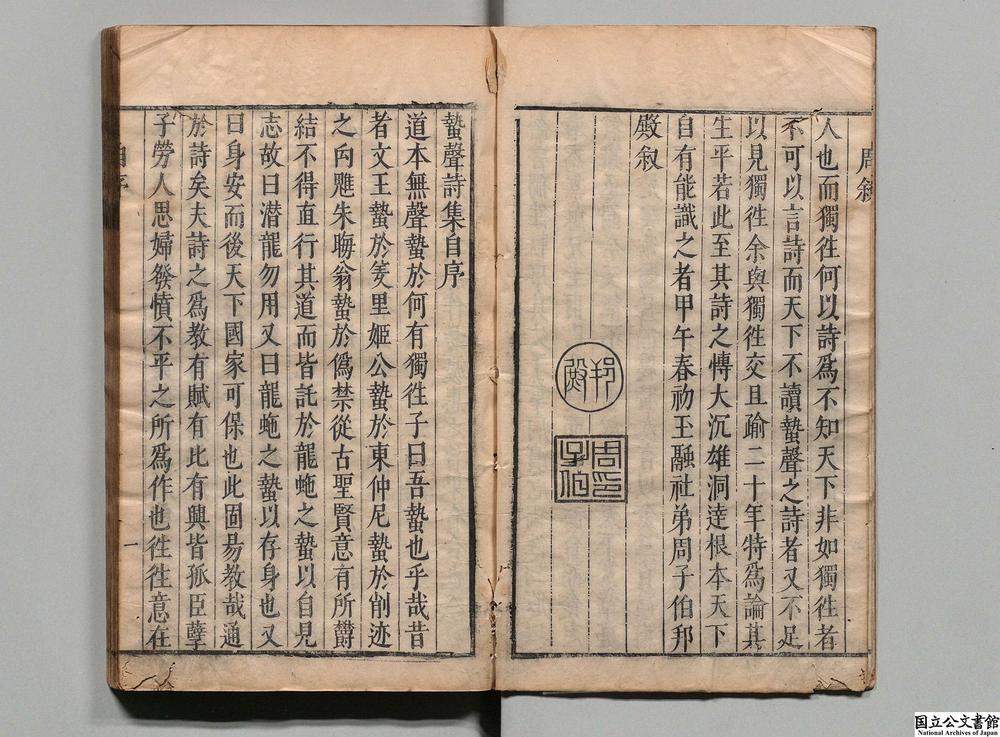 周叙
人也而獨徃何以詩爲不知天下非如獨徃者
不可以言詩而天下不讀蟄聲之詩者又不足
以見獨徃余與獨徃交且踰二十年特爲論其
生平若此至其詩之慱大沉雄洞達根本天下
自有能識之者甲午春初玉融社弟周子伯邦
殿叙
蟄聲詩集自序
道本無聲蟄於何有獨徃子曰吾蟄也乎哉昔
者文王蟄於羑里姬公蟄於東仲尼蟄於削迹
之向魋朱晦翁蟄於僞禁從古聖賢意有所欝
結不得直行其道而皆託於龍虵之蟄以自見
志故曰潜龍勿用又曰龍虵之蟄以存身也又
曰身安而後天下國家可保也此固昜教哉通
於詩矣夫詩之爲教有賦有比有興皆孤臣孽
子勞人思婦發憤不平之所爲作也徃徃意在
一
国立公文書館
National Archives of Japan